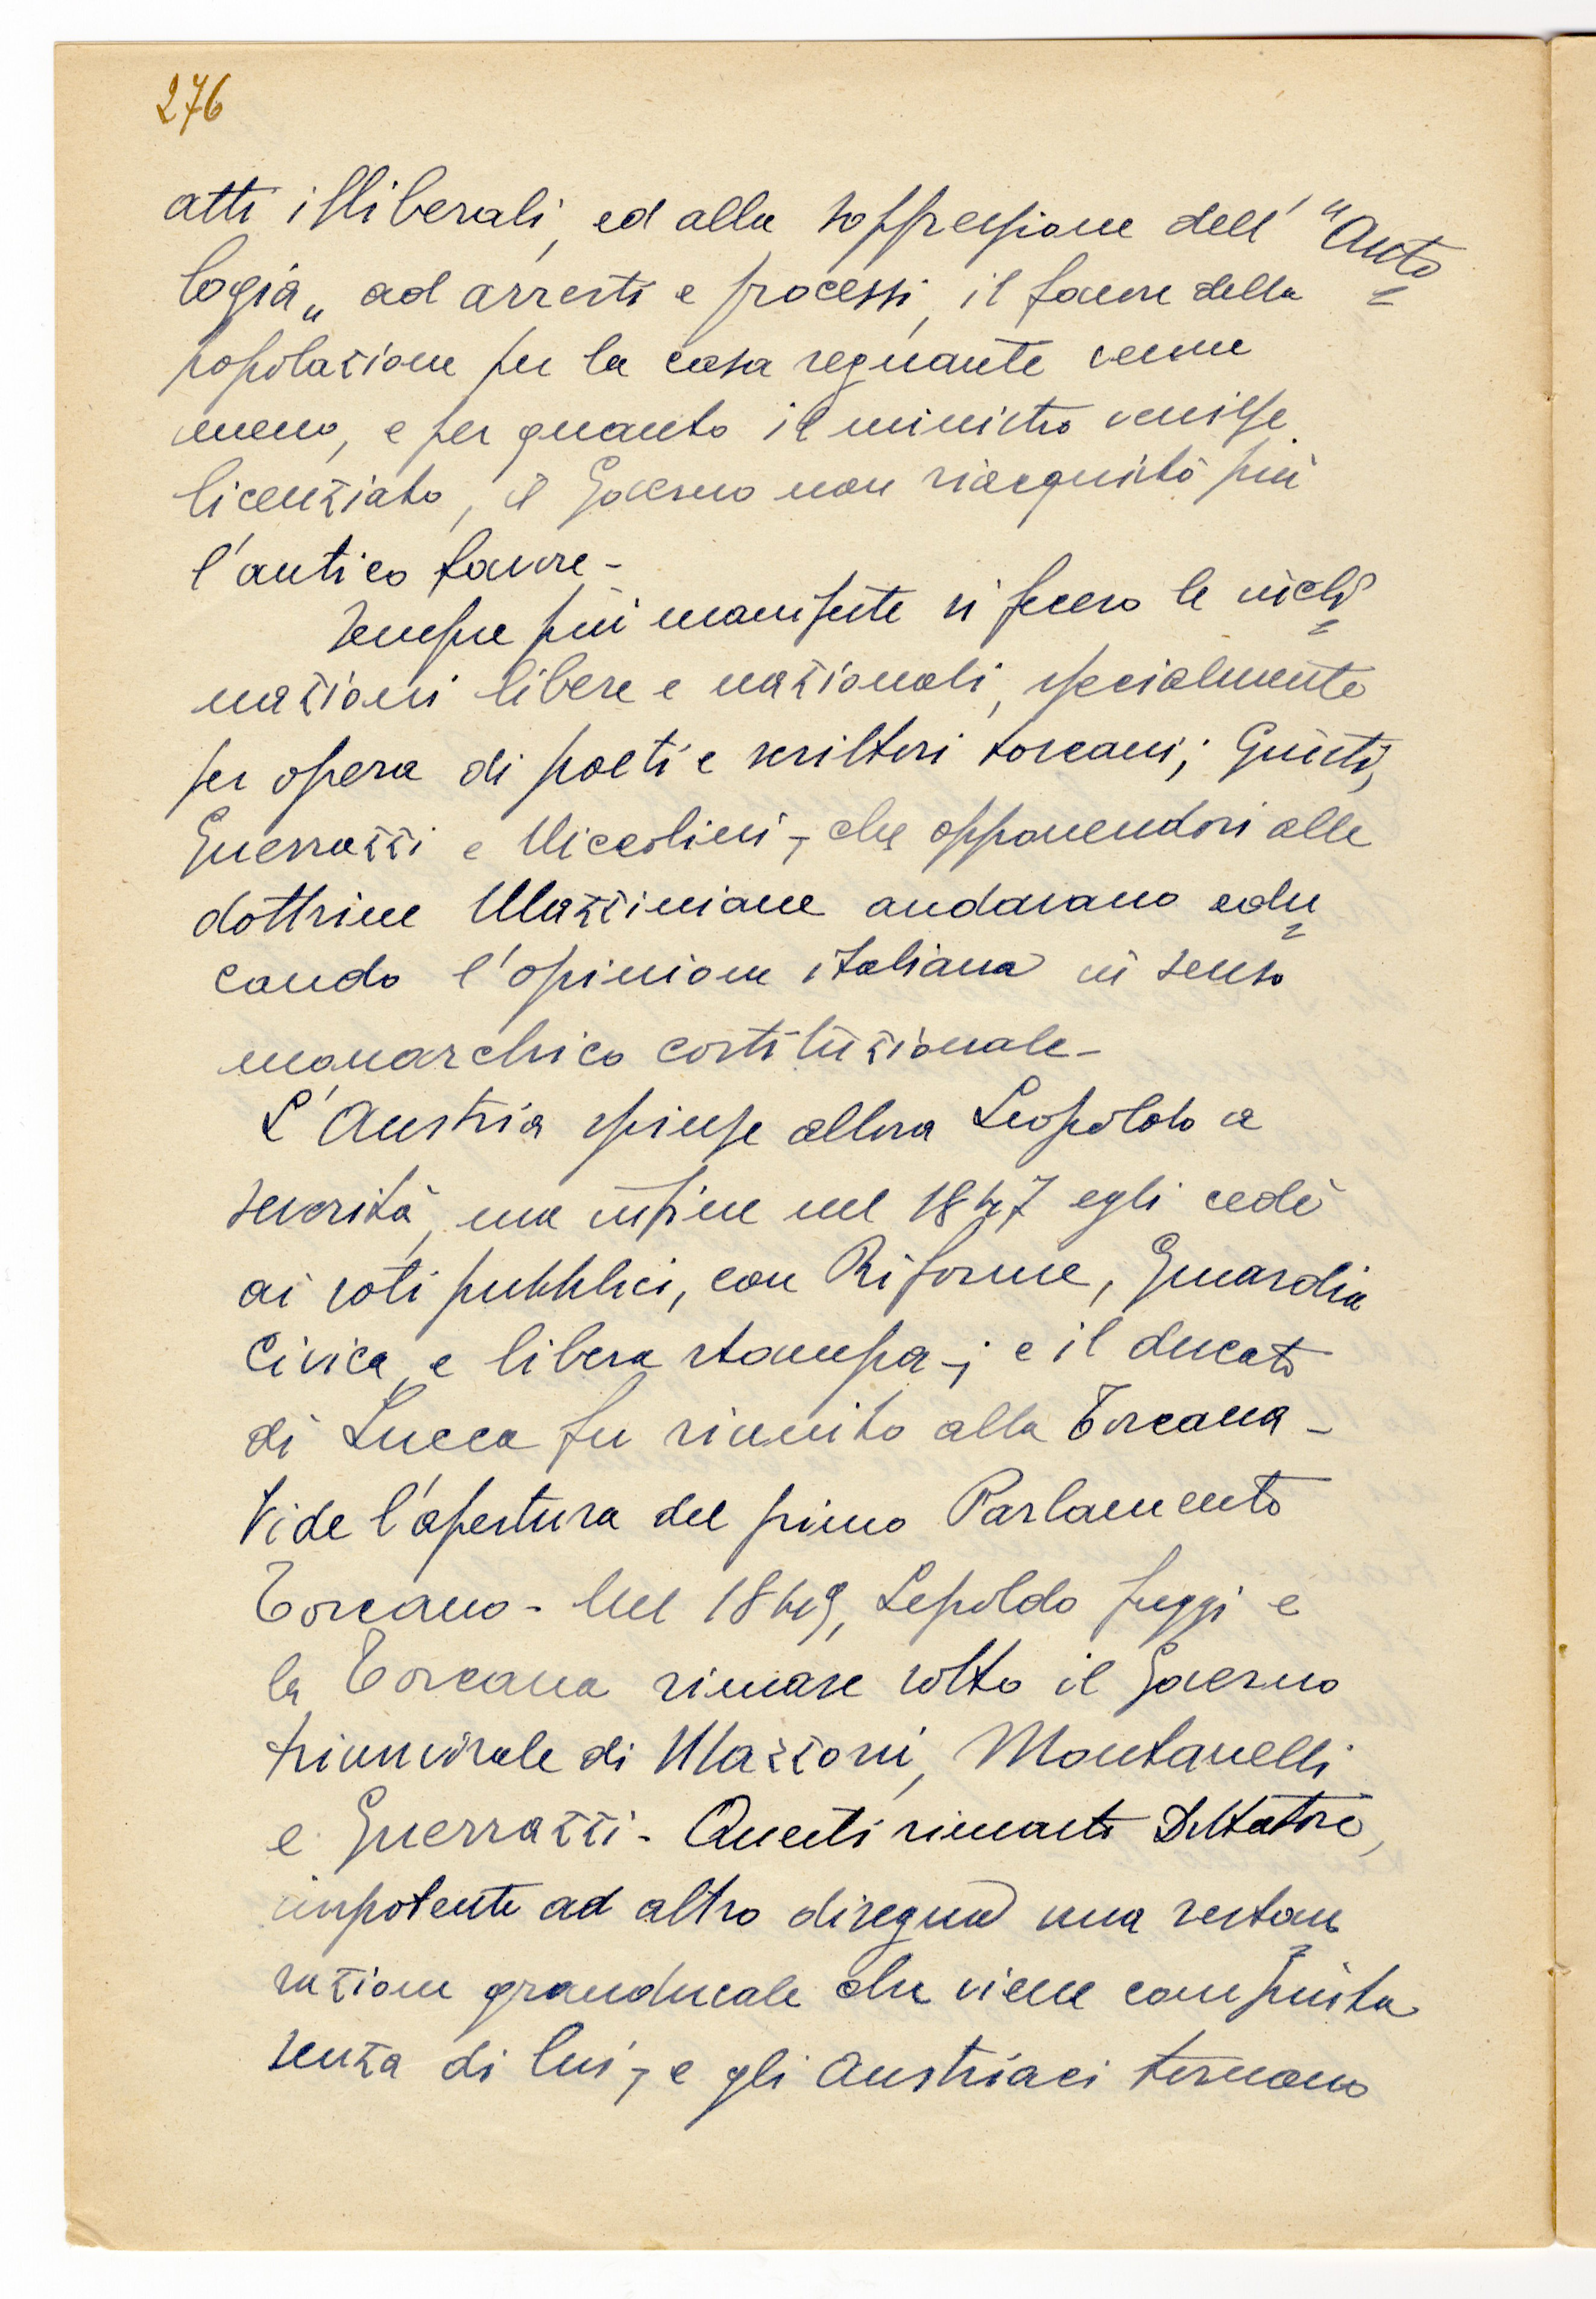 276
atti illiberali, ed alla soppressione dell' "Anto=
logia„ ad arresti e processi, il favore della
popolazione per la casa regnante venne
meno, e per quanto il ministro venisse
licenziato, il Governo non riacquistò più
l'antico favore-
Sempre più manifeste si fecero le incli=
nazioni libere e nazionali, specialmente
per opera di poeti e scrittori toscani; Giusti,
Guerrazzi e Niccolini-, che opponendosi alle
dottrine Mazziniane andavano edu=
cando l'opinione italiana in senso
monarchico costituzionale-
L'Austria spinse allora Leopoldo a
severità, ma infine nel 1847 egli cedè
ai voti pubblici, con Riforme, Guardia
Civica e libera stampa-; e il ducato
di Lucca fu riunito alla Toscana-
Vide l'apertura del primo Parlamento
Toscano- Nel 1849, Lepoldo fuggi e
la Toscana rimase sotto il Governo
triumvirale di Mazzoni, Montanelli
e Guerrazzi- Questi rimasto Dittatore,
impotente ad altro disegnò una restau=
razione granducale che viene compiuta
senza di lui-, e gli Austriaci tornano